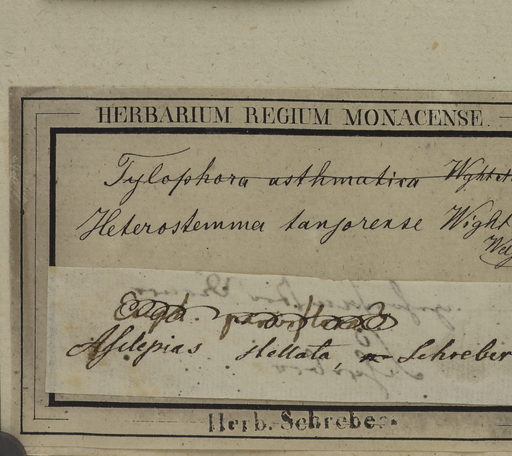 HERBARIUM REGIUM MONACENSE.
Tylophora asthmatica Wight et
Heterostemma tanjorense Wight
Asclepias stellata, Schreber
Herb. Schreber.